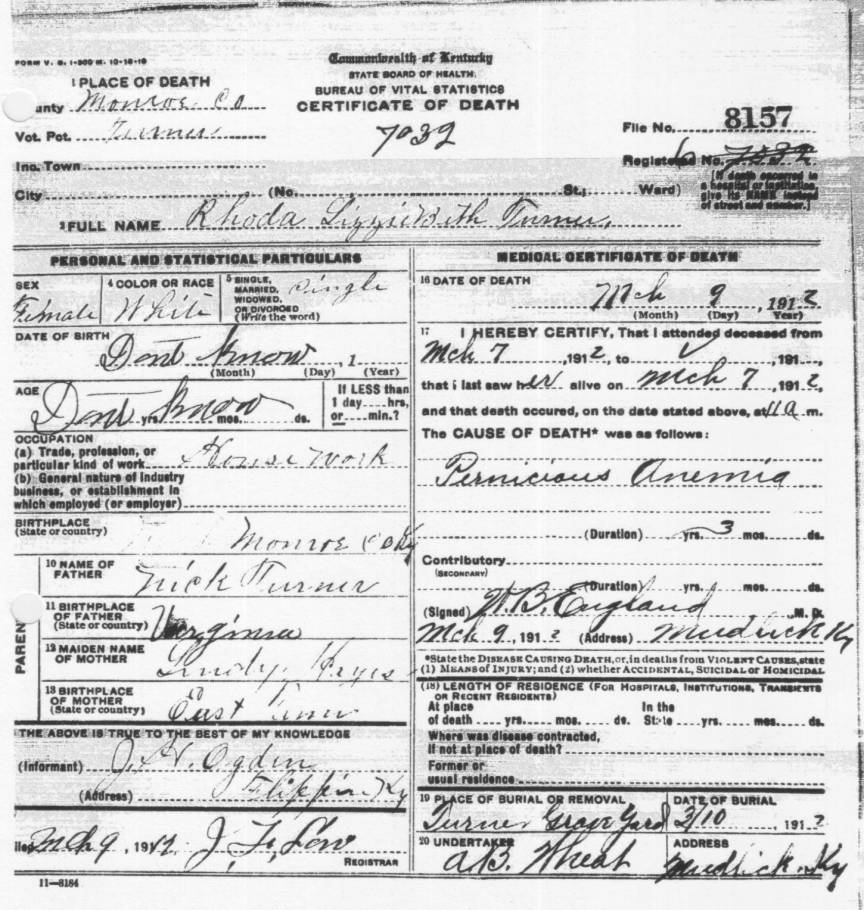 FORM V. S. 1-500 M. 10-18-10
Commonwealth of Kentucky
STATE BOARD OF HEALTH.
BUREAU OF VITAL STATISTICS
CERTIFICATE OF DEATH
7032
1 PLACE OF DEATH
unty Monroe Co
Vot. Pct. Turner
File No. 8157
Registered No. 7532
Inc. Town
[If death occurred in a hospital or institution, give its NAME instead of street and number.]
City (No. St.; Ward)
2 FULL NAME Rhoda Lizzie Beth Turner,
PERSONAL AND STATISTICAL PARTICULARS
SEX Female
4 COLOR OR RACE White
5 SINGLE, MARRIED, WIDOWED, OR DIVORCED (Write the word) Single
DATE OF BIRTH
Dont Know, 1
(Month) (Day) (Year)
AGE
Dont Know yrs. mos. ds.
If LESS than 1 day hrs, or min.?
OCCUPATION
(a) Trade, profession, or
particular kind of work House Work
(b) General nature of industry
business, or establishment in
which employed (or employer)
BIRTHPLACE
(State or country) Monroe Co Ky
PARENT
10 NAME OF FATHER Nick Turner
11 BIRTHPLACE OF FATHER (State or country) Virginia
12 MAIDEN NAME OF MOTHER Lindy
13 BIRTHPLACE OF MOTHER (State or country) East Tenn
THE ABOVE IS TRUE TO THE BEST OF MY KNOWLEDGE
(Informant) Ogden
(Address) Flippin Ky
iled Mch 9, 1912 J. F. Low
REGISTRAR
11—3184
MEDICAL CERTIFICATE OF DEATH
16 DATE OF DEATH
Mch 9, 1912
(Month) (Day) Year)
17 I HEREBY CERTIFY, That I attended deceased from
Mch 7, 1912, to, 191
that i last saw her alive on Mch 7, 1912,
and that death occured, on the date stated above, at 11 a m.
The CAUSE OF DEATH* was as follows:
Pernicious Anemia
(Duration) yrs. 3 mos. ds.
Contributory
(SECONDARY)
(Duration) yrs. mos. ds.
(Signed) W. B. England M. D.
Mch 9, 1912 (Address) Mudlick Ky
*State the DISEASE CAUSING DEATH, or, in deaths from VIOLENT CAUSES, state
(1) MEANS OF INJURY; and (2) whether ACCIDENTAL, SUICIDAL OR HOMICIDAL
(18) LENGTH OF RESIDENCE (FOR HOSPITALS, INSTITUTIONS, TRANSIENTS
OR RECENT RESIDENTS)
At place In the
of death yrs. mos. ds. State yrs. mos. ds.
Where was disease contracted,
if not at place of death?
Former or
usual residence
19 PLACE OF BURIAL OR REMOVAL
Turner Grave Yard
DATE OF BURIAL
3/10, 1912
20 UNDERTAKER
A B. Wheat
ADDRESS
Mudlick, Ky